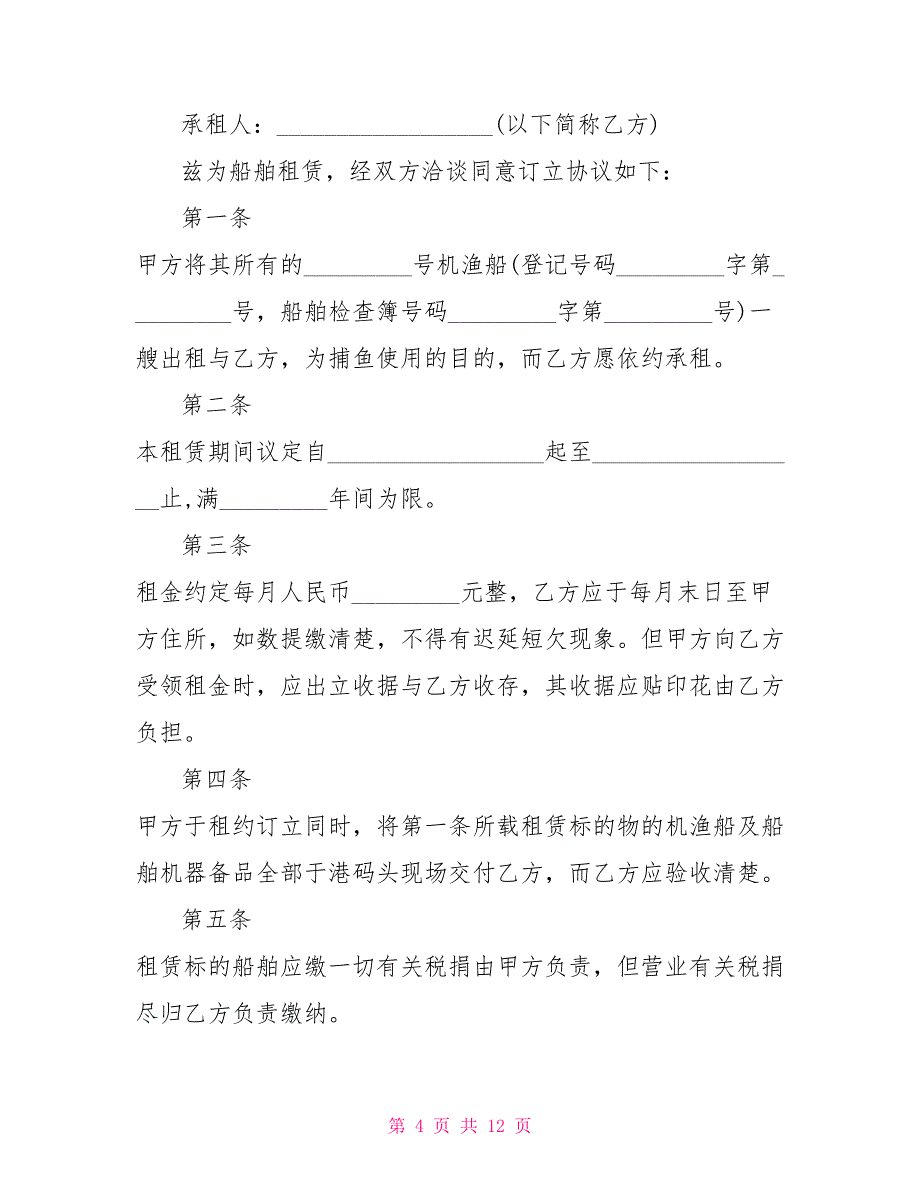 承租人：__________________(以下简称乙方)
兹为船舶租赁，经双方洽谈同意订立协议如下：
第一条
甲方将其所有的_________号机渔船(登记号码_________字第_
________号，船舶检查簿号码_________字第_________号)一
艘出租与乙方，为捕鱼使用的目的，而乙方愿依约承租。
第二条
本租赁期间议定自__________________起至________________
__止,满_________年间为限。
第三条
租金约定每月人民币_________元整，乙方应于每月末日至甲
方住所，如数提缴清楚，不得有迟延短欠现象。但甲方向乙方
受领租金时，应出立收据与乙方收存，其收据应贴印花由乙方
负担。
第四条
甲方于租约订立同时，将第一条所载租赁标的物的机渔船及船
舶机器备品全部于港码头现场交付乙方，而乙方应验收清楚。
第五条
租赁标的船舶应缴一切有关税捐由甲方负责，但营业有关税捐
尽归乙方负责缴纳。
第 4 页 共 12 页